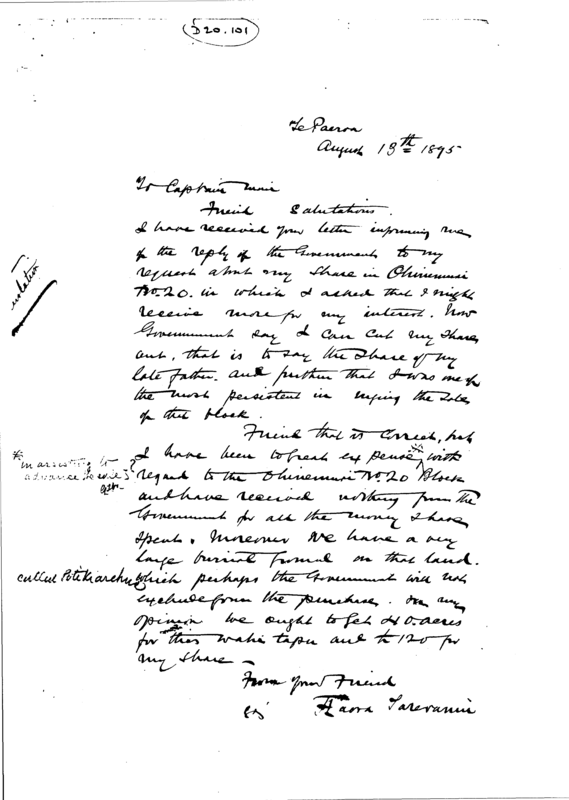 D20.101
Te Paeroa
August 13th 1895
To Captain Mair
Friend Salutations.
I have received your letter informing me
of the reply of the Government to my
request about my share in Ohinemuri
No. 20. in which I asked that I might
receive more for my interest. Now
Government say I can cut my share
out, that is to say the share of my
late father. and further that I was one of
the most persistent in urging the sale
of this block.
Friend that is correct, but
I have been to great expense with
* in assisting to
advance the sale
regard to the Ohinemuri No. 20 Block
and have received nothing from the
Government for all the money I have
spent. Moreover we have a very
large burial ground on that land.
called
which perhaps the Government will not
exclude from the purchase. In my
opinion we ought to get 40. acres
for this wahi tapu and 120 for
my share —
From your Friend
Haora Tareranui
translation